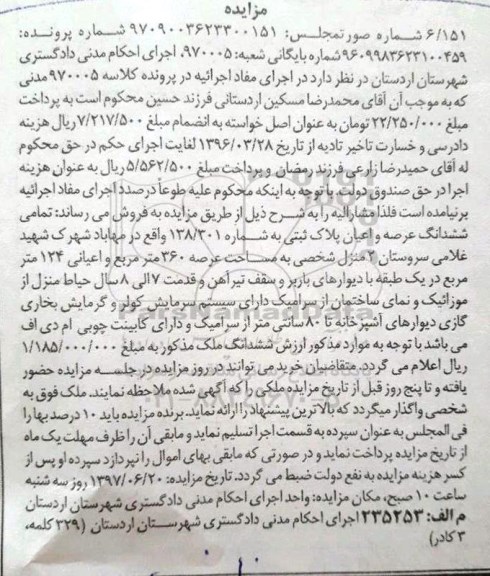 مزایده
۶/۱۵۱ شماره صورتمجلس: ۹۷۰۹۰۰۳۶۲۳۳۰۰۱۵۱ شماره پرونده:
۹۶۰۹۹۸۳۶۲۳۱۰۰۴۵۹ شماره بایگانی شعبه: ۹۷۰۰۰۵. اجرای احکام مدنی دادگستری
شهرستان اردستان در نظر دارد در اجرای مفاد اجرائیه در پرونده کلاسه ۹۷۰۰۰۵ مدنی
که به موجب آن آقای محمدرضا مسکین اردستانی فرزند حسین محکوم است به پرداخت
مبلغ ۲۲/۲۵۰/۰۰۰ تومان به عنوان اصل خواسته به انضمام مبلغ ۷/۲۱۷/۵۰۰ ریال هزینه
دادرسی و خسارت تاخیر تادیه از تاریخ ۱۳۹۶/۰۳/۲۸ لغایت اجرای حکم در حق محکوم
له آقای حمیدرضا زارعی فرزند رمضان و پرداخت مبلغ ۵/۵۶۲/۵۰۰ ریال به عنوان هزینه
اجرا در حق صندوق دولت. با توجه به اینکه محکوم علیه طوعاً درصدد اجرای مفاد اجرائیه
برنیامده است فلذا مشارالیه را به شرح ذیل از طریق مزایده به فروش می رساند: تمامی
ششدانگ عرصه و اعیان پلاک ثبتی به شماره ۱۳۸/۳۰۱ واقع در مهاباد شهرک شهید
غلامی سروستان ۲ منزل شخصی به مساحت عرصه ۳۶۰ متر مربع و اعیانی ۱۲۴ متر
مربع در یک طبقه با دیوارهای باربر و سقف تیر آهن و قدمت ۷ الی ۸ سال حیاط منزل از
موزائیک و نمای ساختمان از سرامیک دارای سیستم سرمایش کولر و گرمایش بخاری
گازی دیوارهای آشپزخانه تا ۸۰ سانتی متر از سرامیک و دارای کابینت چوبی ام دی اف
می باشد با توجه به موارد مذکور ارزش ششدانگ ملک مذکور به مبلغ ۱/۱۸۵/۰۰۰/۰۰۰
ریال اعلام می گردد. متقاضیان خرید می توانند در روز مزایده در جلسه مزایده حضور
یافته و تا پنج روز قبل از تاریخ مزایده ملکی را که آگهی شده ملاحظه نمایند. ملک فوق به
شخصی واگذار میگردد که بالاترین پیشنهاد را ارائه نماید. برنده مزایده باید ۱۰ درصد بها را
فی المجلس به عنوان سپرده به قسمت اجرا تسلیم نماید و مابقی آن را ظرف مهلت یک ماه
از تاریخ مزایده پرداخت نماید و در صورتی که مابقی بهای اموال را نپردازد سپرده او پس از
کسر هزینه مزایده به نفع دولت ضبط می گردد. تاریخ مزایده: ۱۳۹۷/۰۶/۲۰ روز سه شنبه
ساعت ۱۰ صبح، مکان مزایده: واحد اجرای احکام مدنی دادگستری شهرستان اردستان
م الف: ۲۳۵۲۵۳ اجرای احکام مدنی دادگستری شهرستان اردستان (۳۲۹ کلمه،
۳ کادر)